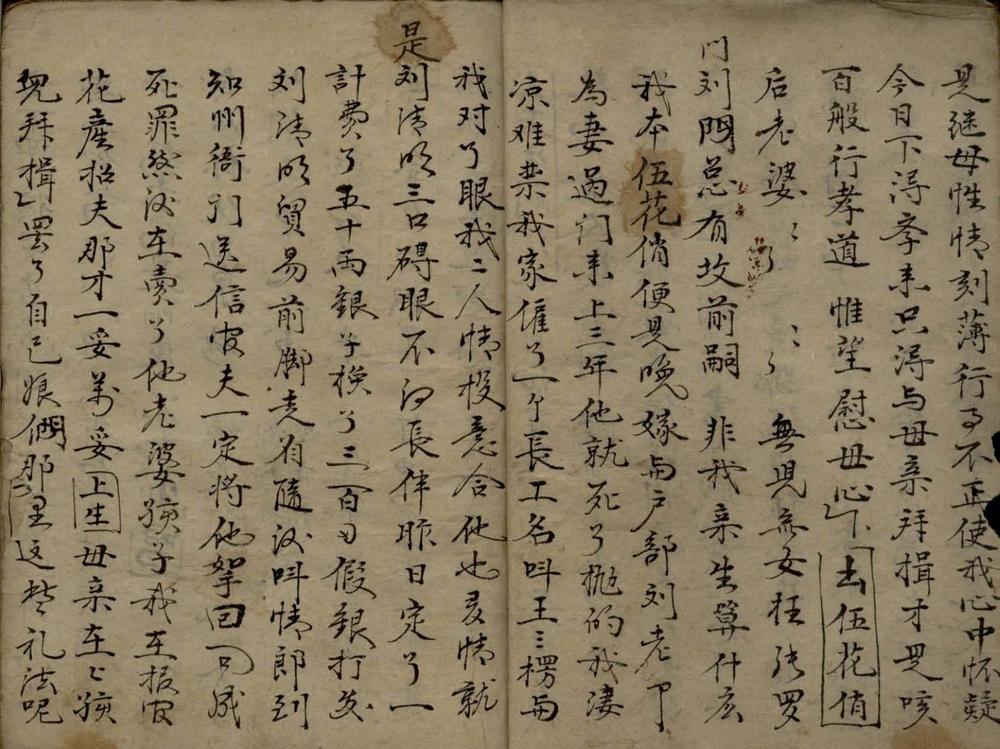 是继母性情刻薄行事不正使我心中怀疑
今日下得孝来只得与母亲拜揖才是咳
百般行孝道 惟望慰母心下 上伍花俏
后老婆ミ了 ミ了 無児無女枉张罗
门刘門总有坟前嗣 非我亲生算什広
我本伍花俏便是晚嫁与户部刘老卩
為妻過门来上三年他就死了抛的我淒
凉难禁我家催了一个長工名叫王三楞与
我对了眼我二人情投意合他也
是刘清明三口碍眼不得長伴昨日定了一
計费了五十両銀子换了三百両假銀打发
刘清明貿易前脚走有隨後叫情郎到
知州衙门送信官夫一定将他拏回问成
死罪然後在賣了他老婆孩子我在报官
花産招夫那才一妥萬妥上生母亲在上孩
児拜揖罢了自己娘们那里这些礼法呢